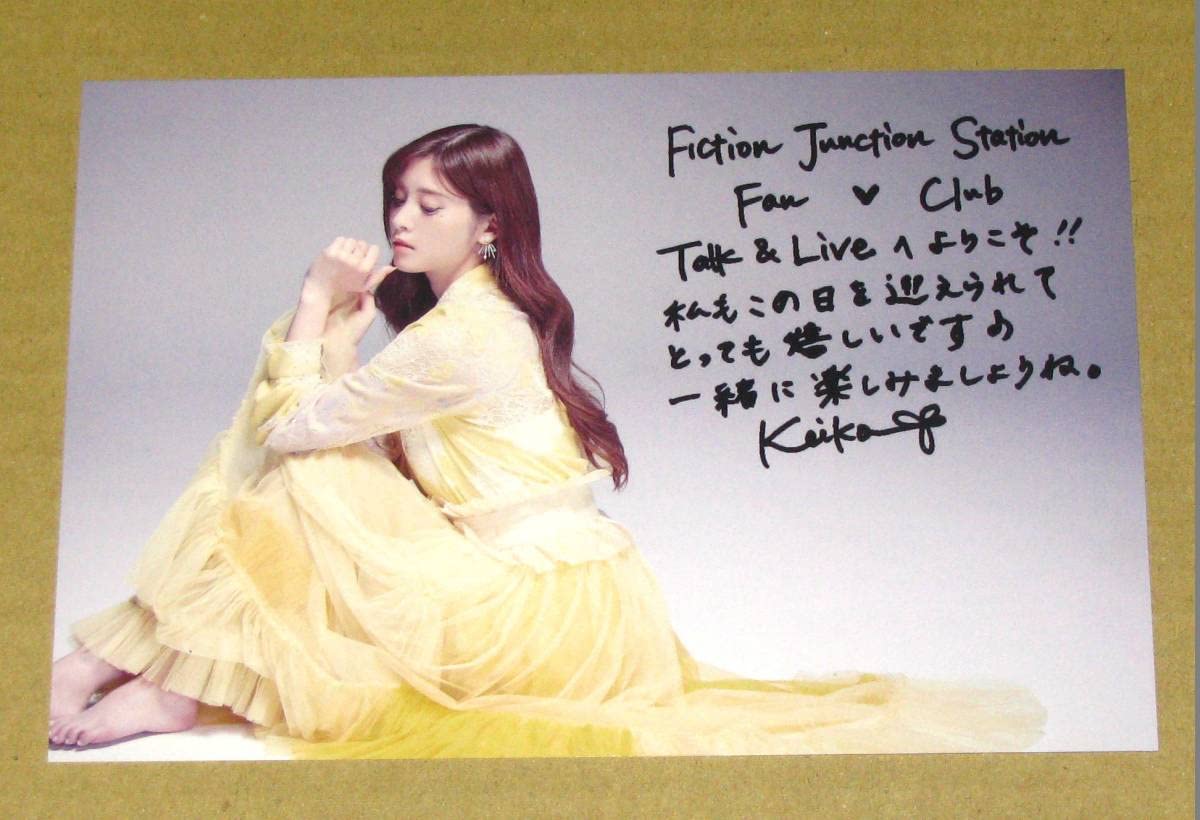 Fiction Junction Station
Fan ♥ Club
Talk & Live へようこそ!!
私もこの日を迎えられて
とっても嬉しいです♪
一緒に楽しみましょうね。
Keiko